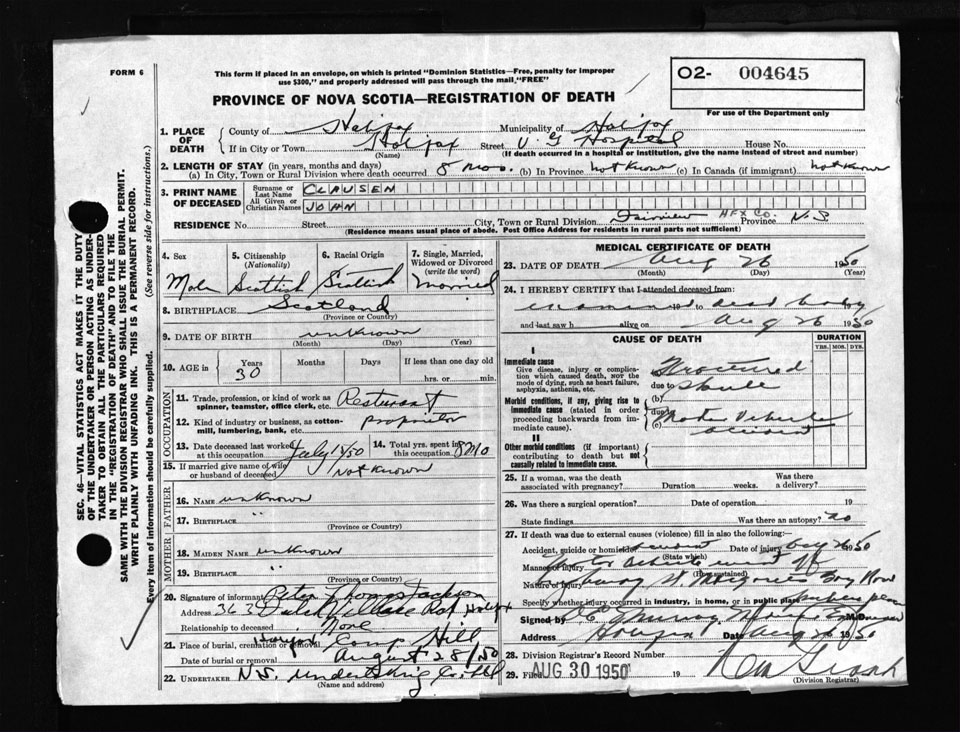 FORM 6
This form if placed in an envelope, on which is printed "Dominion Statistics—Free, penalty for improper
use $300," and properly addressed will pass through the mail, "FREE"
O2- 004645
For use of the Department only
PROVINCE OF NOVA SCOTIA—REGISTRATION OF DEATH
1. PLACE OF DEATH
County of Halifax Municipality of Halifax
If in City or Town Halifax Street V. G Hospital House No.
(Name) (If death occurred in a hospital or institution, give the name instead of street and number)
2. LENGTH OF STAY (in years, months and days)
(a) In City, Town or Rural Division where death occurred 8 mos. (b) In Province not known (c) In Canada (if immigrant) not known
3. PRINT NAME OF DECEASED
Surname or Last Name CLAUSEN
All Given or Christian Names JOHN
RESIDENCE No. Street City, Town or Rural Division Fairview HFX Co. Province N.S
(Residence means usual place of abode. Post Office Address for residents in rural parts not sufficient)
4. Sex Male
5. Citizenship (Nationality) Scottish
6. Racial Origin Scottish
7. Single, Married, Widowed or Divorced (write the word) Married
8. BIRTHPLACE Scotland
(Province or Country)
9. DATE OF BIRTH unknown
(Month) (Day) (Year)
10. AGE in Years 30 Months Days If less than one day old
hrs. or min.
OCCUPATION
11. Trade, profession, or kind of work as spinner, teamster, office clerk, etc. Resturant
12. Kind of industry or business, as cotton-mill, lumbering, bank, etc. proprietor
13. Date deceased last worked at this occupation July 1/50
14. Total yrs. spent in this occupation 8 Mo
15. If married give name of wife or husband of deceased Not Known
FATHER
16. NAME unknown
17. BIRTHPLACE "
(Province or Country)
MOTHER
18. MAIDEN NAME unknown
19. BIRTHPLACE "
(Province or Country)
20. Signature of informant Peter Thomas Jackson
Address 363 Dutch Village Rd Halifax
Relationship to deceased None
21. Place of burial, cremation or removal Halifax Camp Hill
Date of burial or removal August 28/50
22. UNDERTAKER N.S. Undertaking Co. Ltd
(Name and address)
MEDICAL CERTIFICATE OF DEATH
23. DATE OF DEATH Aug 26 1950
(Month) (Day) (Year)
24. I HEREBY CERTIFY that I attended deceased from
examined 19 to dead body
and last saw h alive on Aug 26 1950
CAUSE OF DEATH DURATION
YRS. MOS. DYS.
I
Immediate cause
Give disease, injury or complication which caused death, NOT the mode of dying, such as heart failure, asphyxia, asthenia, etc.
(a) Fractured
due to Skull
Morbid conditions, if any, giving rise to immediate cause (stated in order proceeding backwards from immediate cause).
(b)
due to Motor Vehicle
(c) accident
II
Other morbid conditions (if important) contributing to death but not causally related to immediate cause.
25. If a woman, was the death associated with pregnancy? Duration weeks. Was there a delivery?
26. Was there a surgical operation? Date of operation 19
State findings Was there an autopsy? no
27. If death was due to external causes (violence) fill in also the following:
Accident, suicide or homicide? accident Date of injury Aug 26 1950
(State which)
Manner of injury Motor vehicle went off
(How sustained)
Nature of injury highway
Specify whether injury occurred in industry, in home, or in public place public place
Signed by M.D.
Address Halifax Date Aug 26 1950
28. Division Registrar's Record Number
29. Filed AUG 30 1950 19
(Division Registrar)
SEC. 46—VITAL STATISTICS ACT MAKES IT THE DUTY
OF THE UNDERTAKER OR PERSON ACTING AS UNDER-
TAKER TO OBTAIN ALL THE PARTICULARS REQUIRED
IN THE "REGISTRATION OF DEATH" AND TO FILE THE
SAME WITH THE DIVISION REGISTRAR WHO SHALL ISSUE THE BURIAL PERMIT.
WRITE PLAINLY WITH UNFADING INK. THIS IS A PERMANENT RECORD.
Every item of information should be carefully supplied. (See reverse side for instructions.)